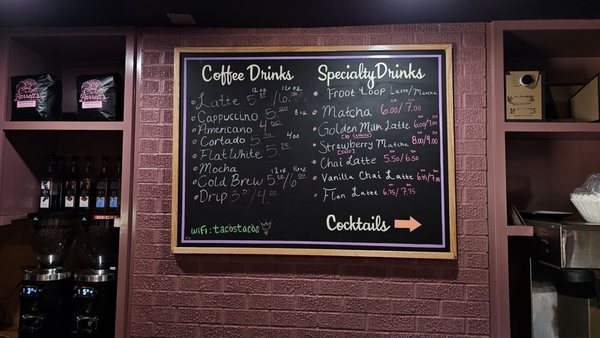 Coffee Drinks
12oz 16oz
Latte 5.00/6.00
Cappuccino 5.00 8oz
Americano 4.00
Cortado 5.00 4oz
Flat White 5.00
Mocha
12oz 16oz
Cold Brew 5.00/6.00
Drip 3.00/4.00
wifi: tacostacos
Specialty Drinks
Froot Loop Latte/Matcha
Matcha 6.00/7.00
Golden Milk Latte 6.00/7.00
Strawberry Matcha 8.00/9.00
Chai Latte 5.50/6.50
Vanilla Chai Latte 6.75/7.75
Flan Latte 6.75/7.75
Cocktails